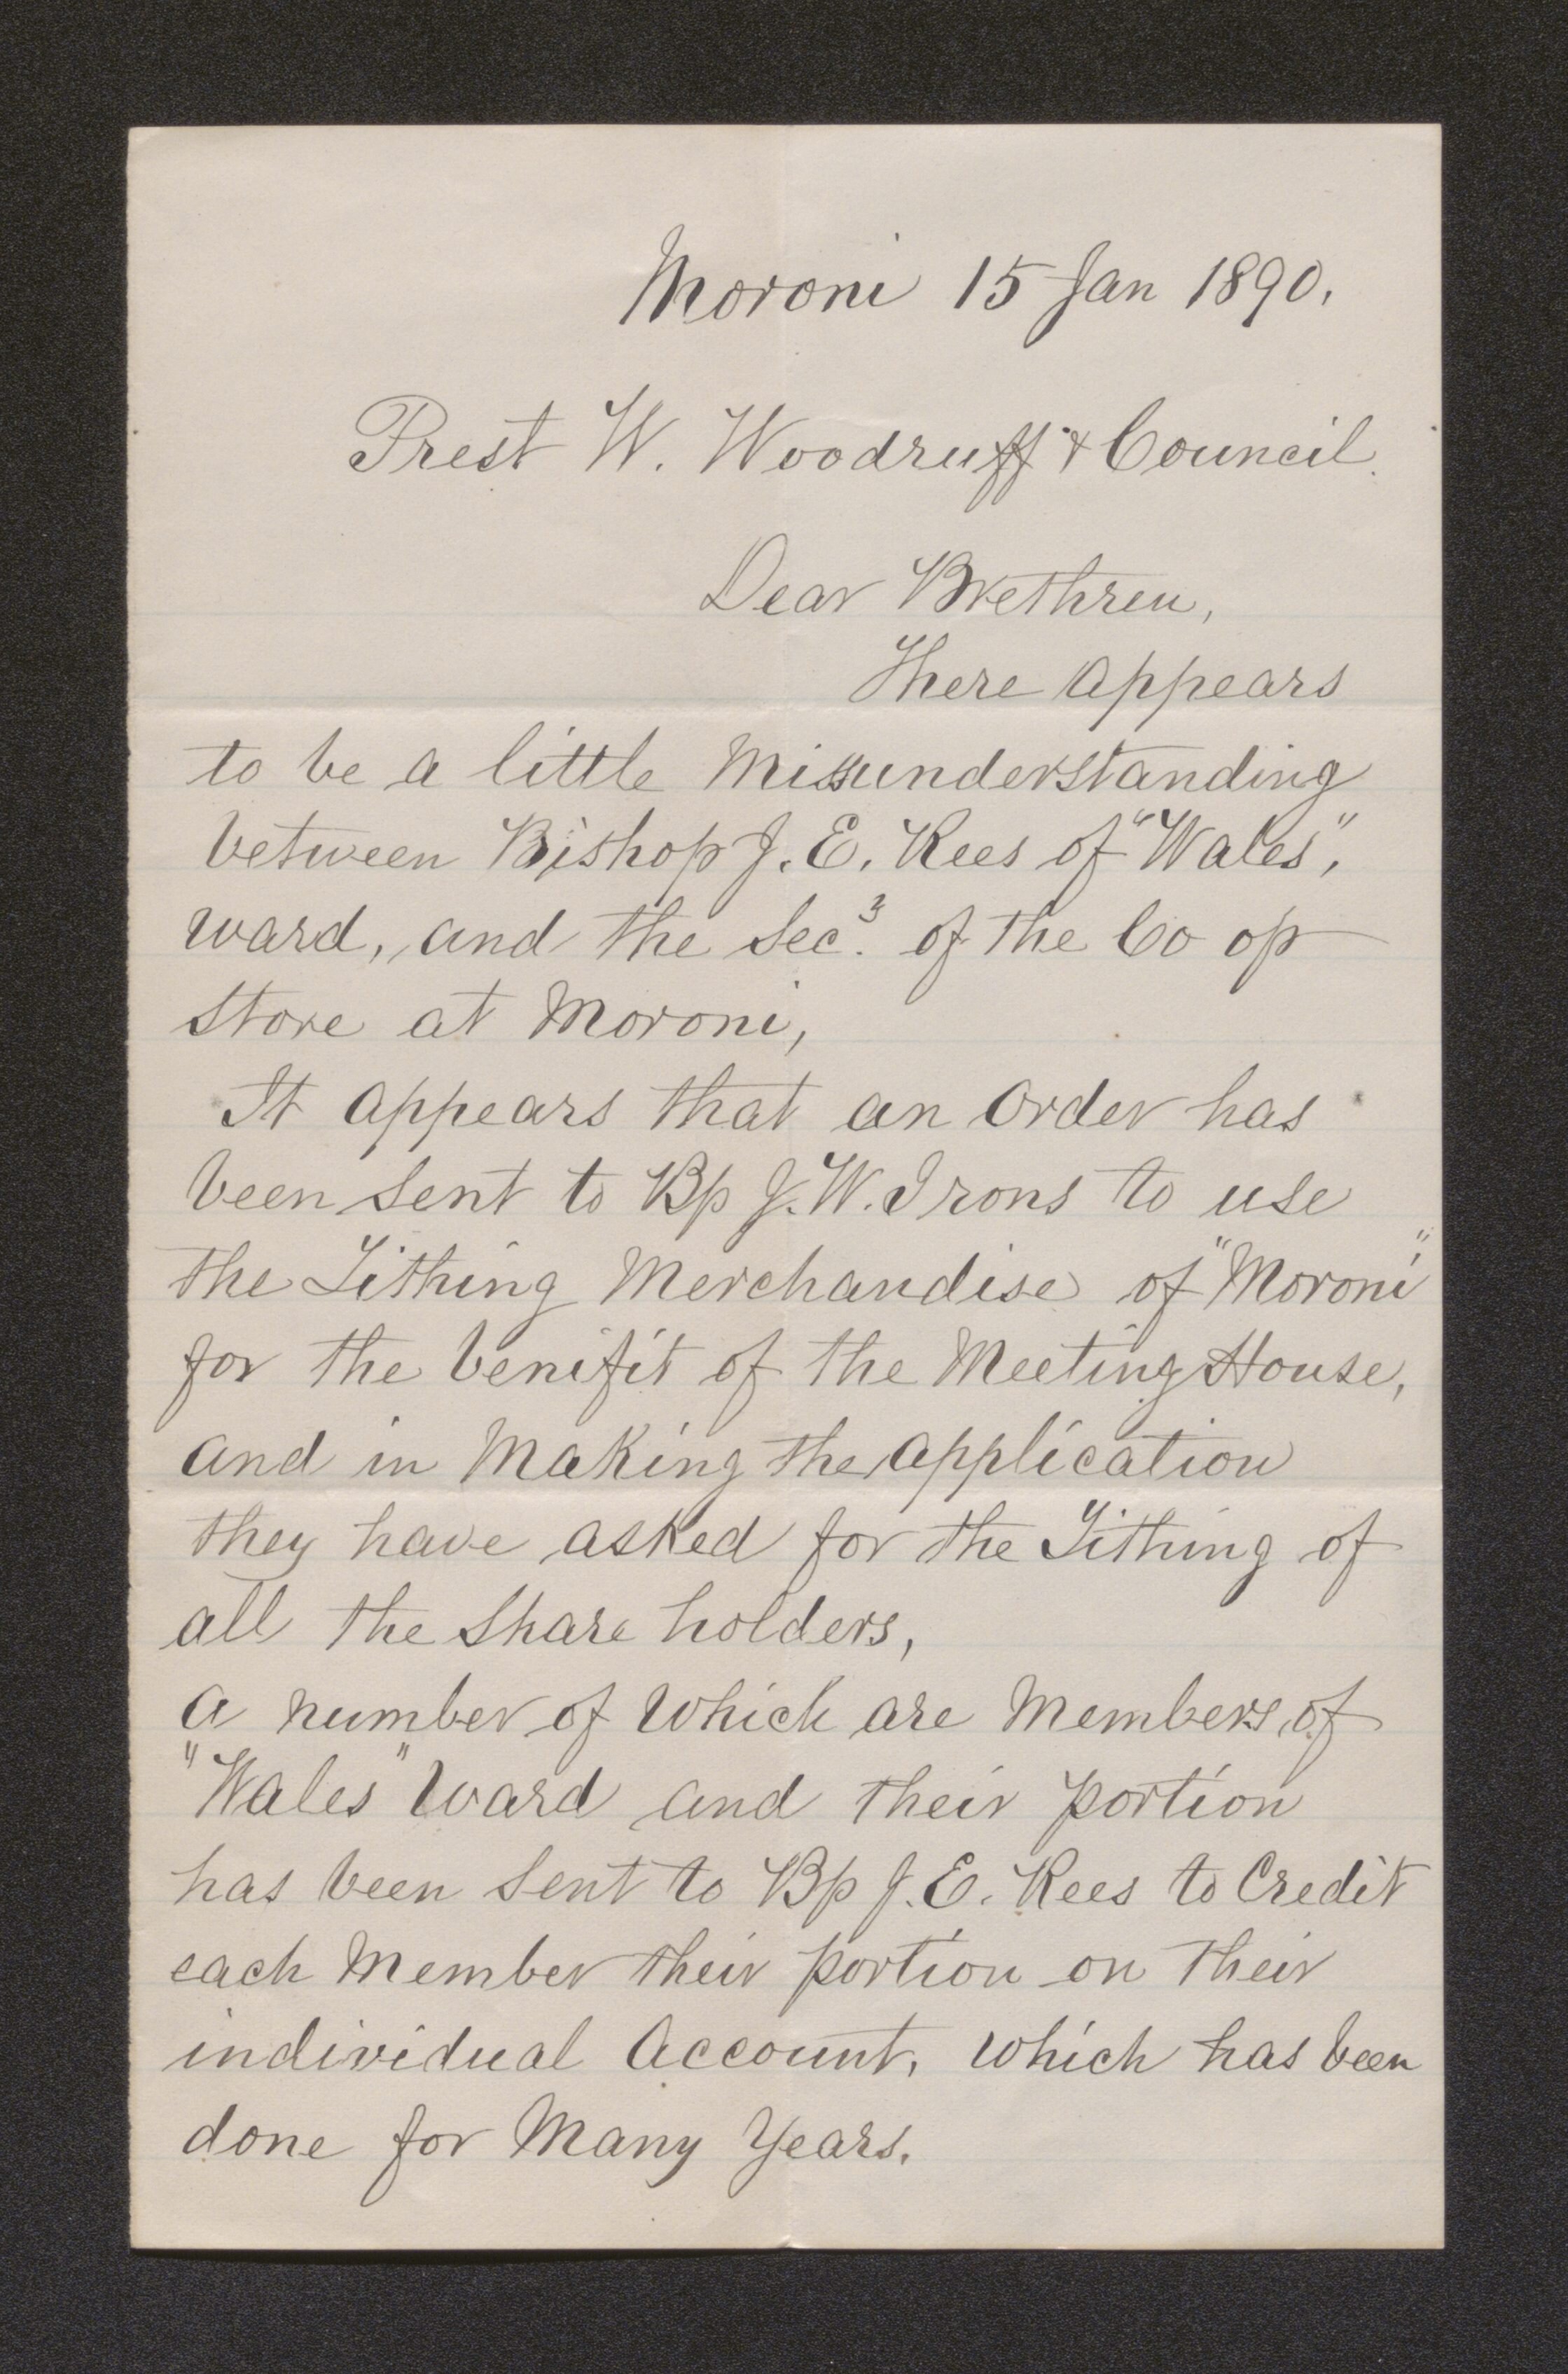 Moroni 15 Jan 1890.
Prest W. Woodruff & Council.
Dear Brethren,
There appears
to be a little Misunderstanding
between Bishop J. E. Rees of "Wales",
ward, and the Sec.y of the Co op
store at Moroni,
It appears that an order has
been sent to Bp J. W. Irons to use
the Tithing Merchandise of "Moroni"
for the benifit of the Meeting House,
and in Making the application
they have asked for the Tithing of
all the Share holders,
a number of which are Members of
"Wales" Ward and their portion
has been sent to Bp J. E. Rees to Credit
each Member their portion on their
individual Account, which has been
done for Many Years.